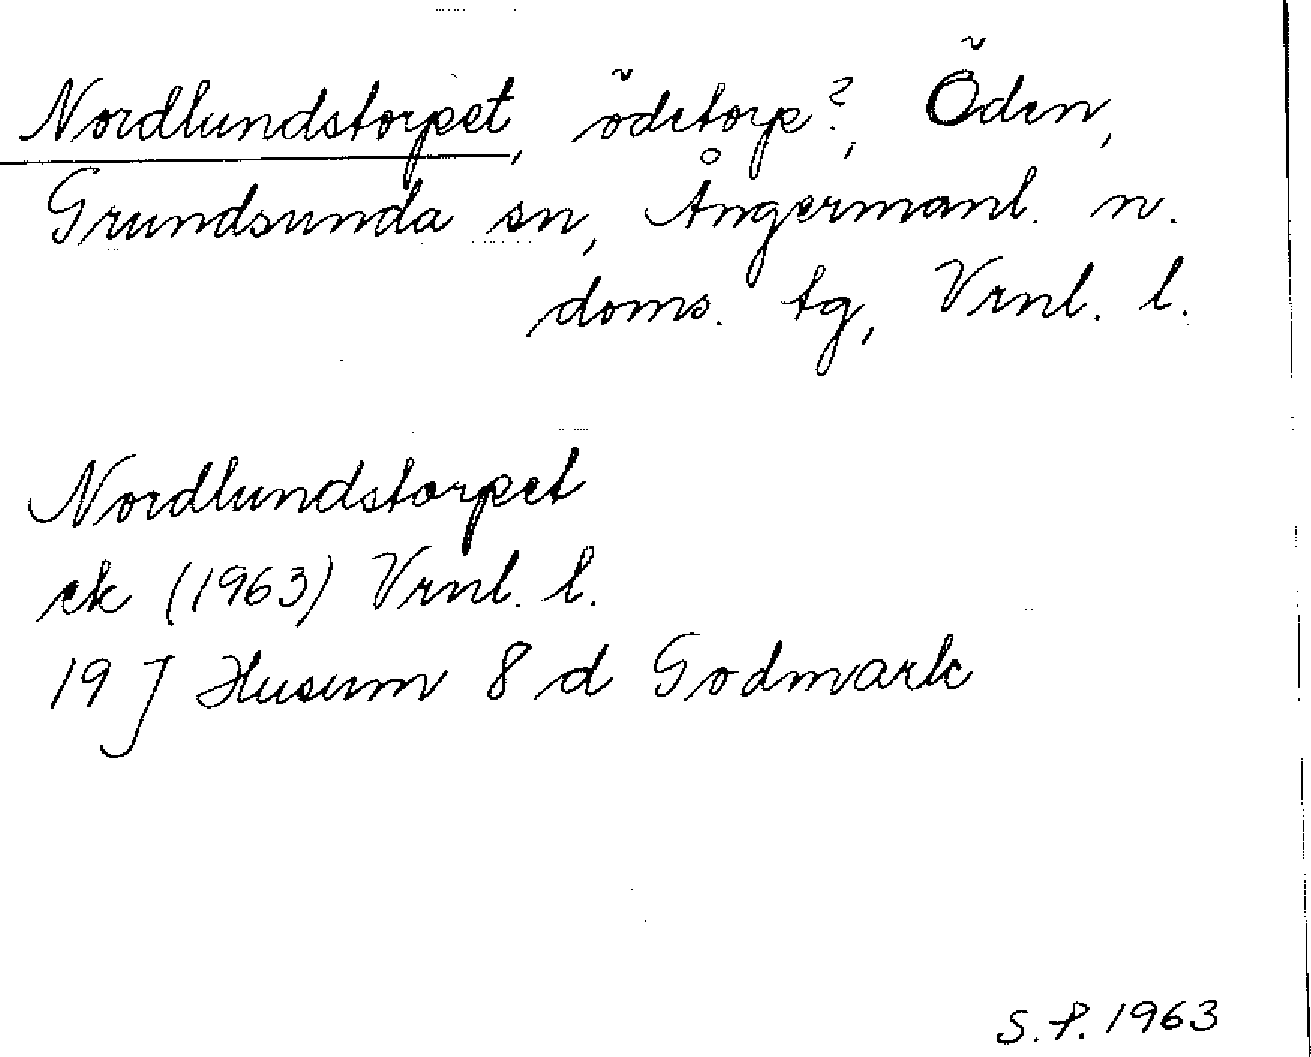 Nordlundstorpet, ödetorp?, Öden,
Grundsunda sn, Ångermanl. n.
doms. tg, Vrnl. l.
Nordlundstorpet
ek (1963) Vrnl. l.
19 J Husum 8 d Godmark
S.P. 1963